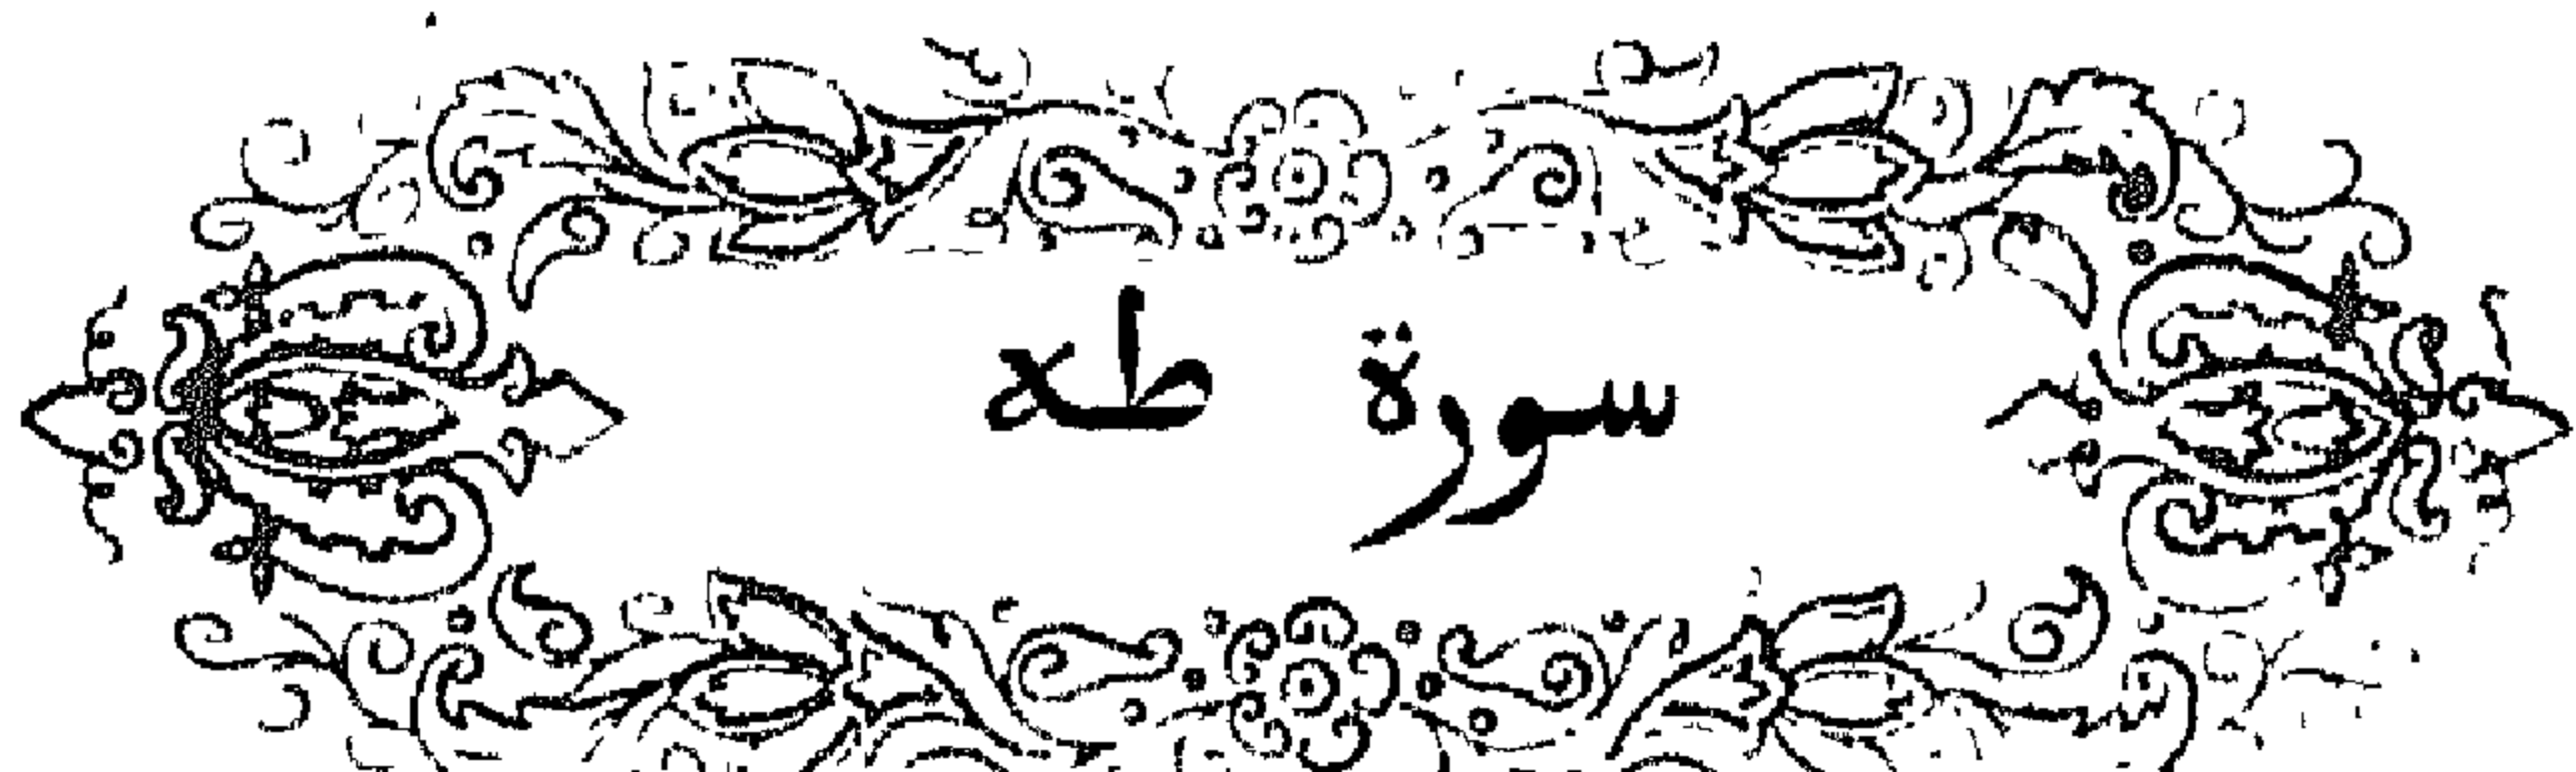 سورة طه